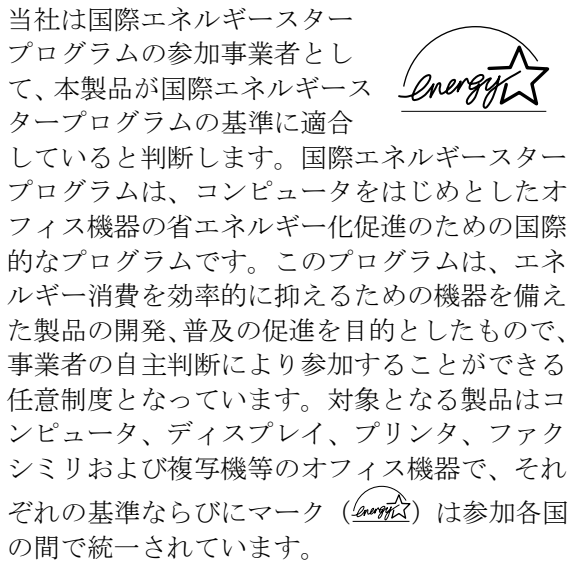 当社は国際エネルギースター
プログラムの参加事業者とし
て、本製品が国際エネルギース
タープログラムの基準に適合
energy
していると判断します。国際エネルギースター
プログラムは、コンピュータをはじめとしたオ
フィス機器の省エネルギー化促進のための国際
的なプログラムです。このプログラムは、エネ
ルギー消費を効率的に抑えるための機器を備え
た製品の開発、普及の促進を目的としたもので、
事業者の自主判断により参加することができる
任意制度となっています。対象となる製品はコ
ンピュータ、ディスプレイ、プリンタ、ファク
シミリおよび複写機等のオフィス機器で、それ
ぞれの基準ならびにマーク（energy）は参加各国
の間で統一されています。